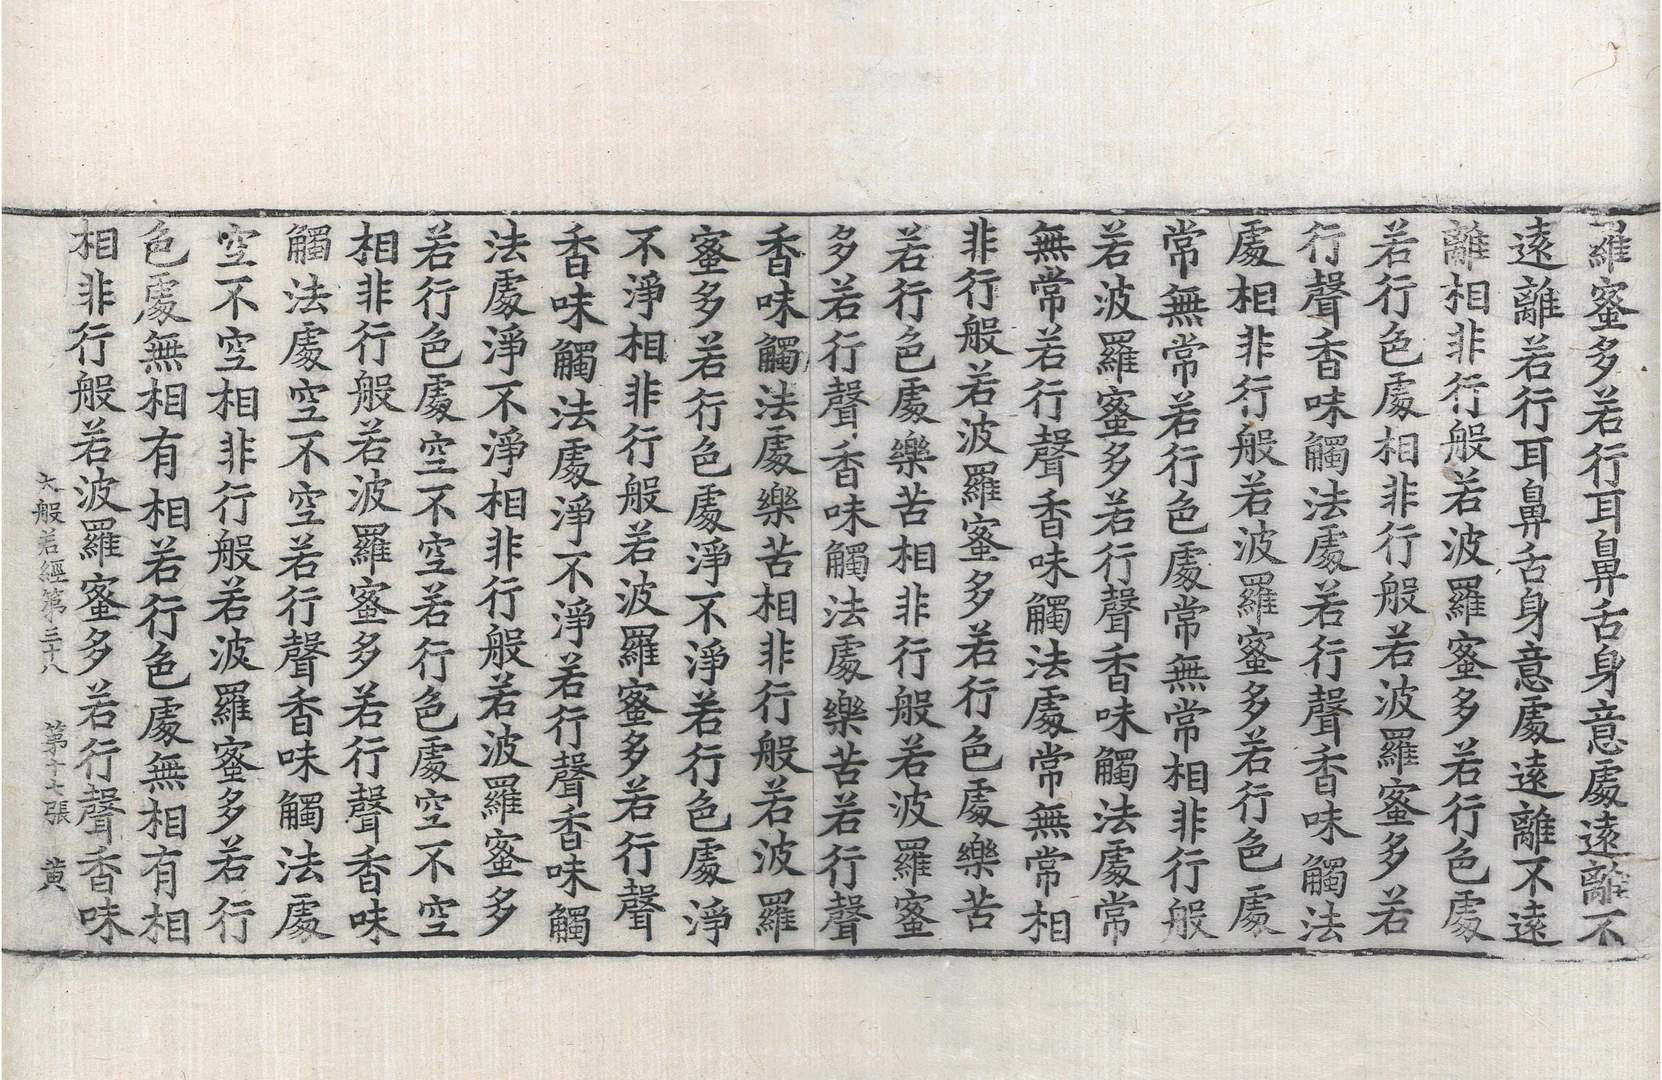 羅蜜多若行耳鼻舌身意處遠離不
遠離若行耳鼻舌身意處遠離不遠
離相非行般若波羅蜜多若行色處
若行色處相非行般若波羅蜜多若
行聲香味觸法處若行聲香味觸法
處相非行般若波羅蜜多若行色處
常無常若行色處常無常相非行般
若波羅蜜多若行聲香味觸法處常
無常若行聲香味觸法處常無常相
非行般若波羅蜜多若行色處樂苦
若行色處樂苦相非行般若波羅蜜
多若行聲香味觸法處樂苦若行聲
香味觸法處樂苦相非行般若波羅
蜜多若行色處淨不淨若行色處淨
不淨相非行般若波羅蜜多若行聲
香味觸法處淨不淨若行聲香味觸
法處淨不淨相非行般若波羅蜜多
若行色處空不空若行色處空不空
相非行般若波羅蜜多若行聲香味
觸法處空不空若行聲香味觸法處
空不空相非行般若波羅蜜多若行
色處無相有相若行色處無相有相
相非行般若波羅蜜多若行聲香味
大般若經第三十八 第十七張 黃